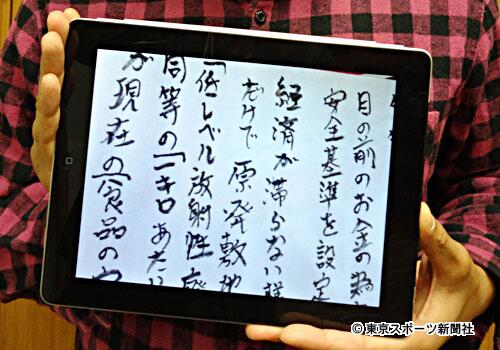 目の前のお金の為
安全基準を設定
経済が滞らない様
だけで 原発敷地
「低レベル放射性廃
同等の「1キロあたり
が現在の「食品の安
©東京スポーツ新聞社